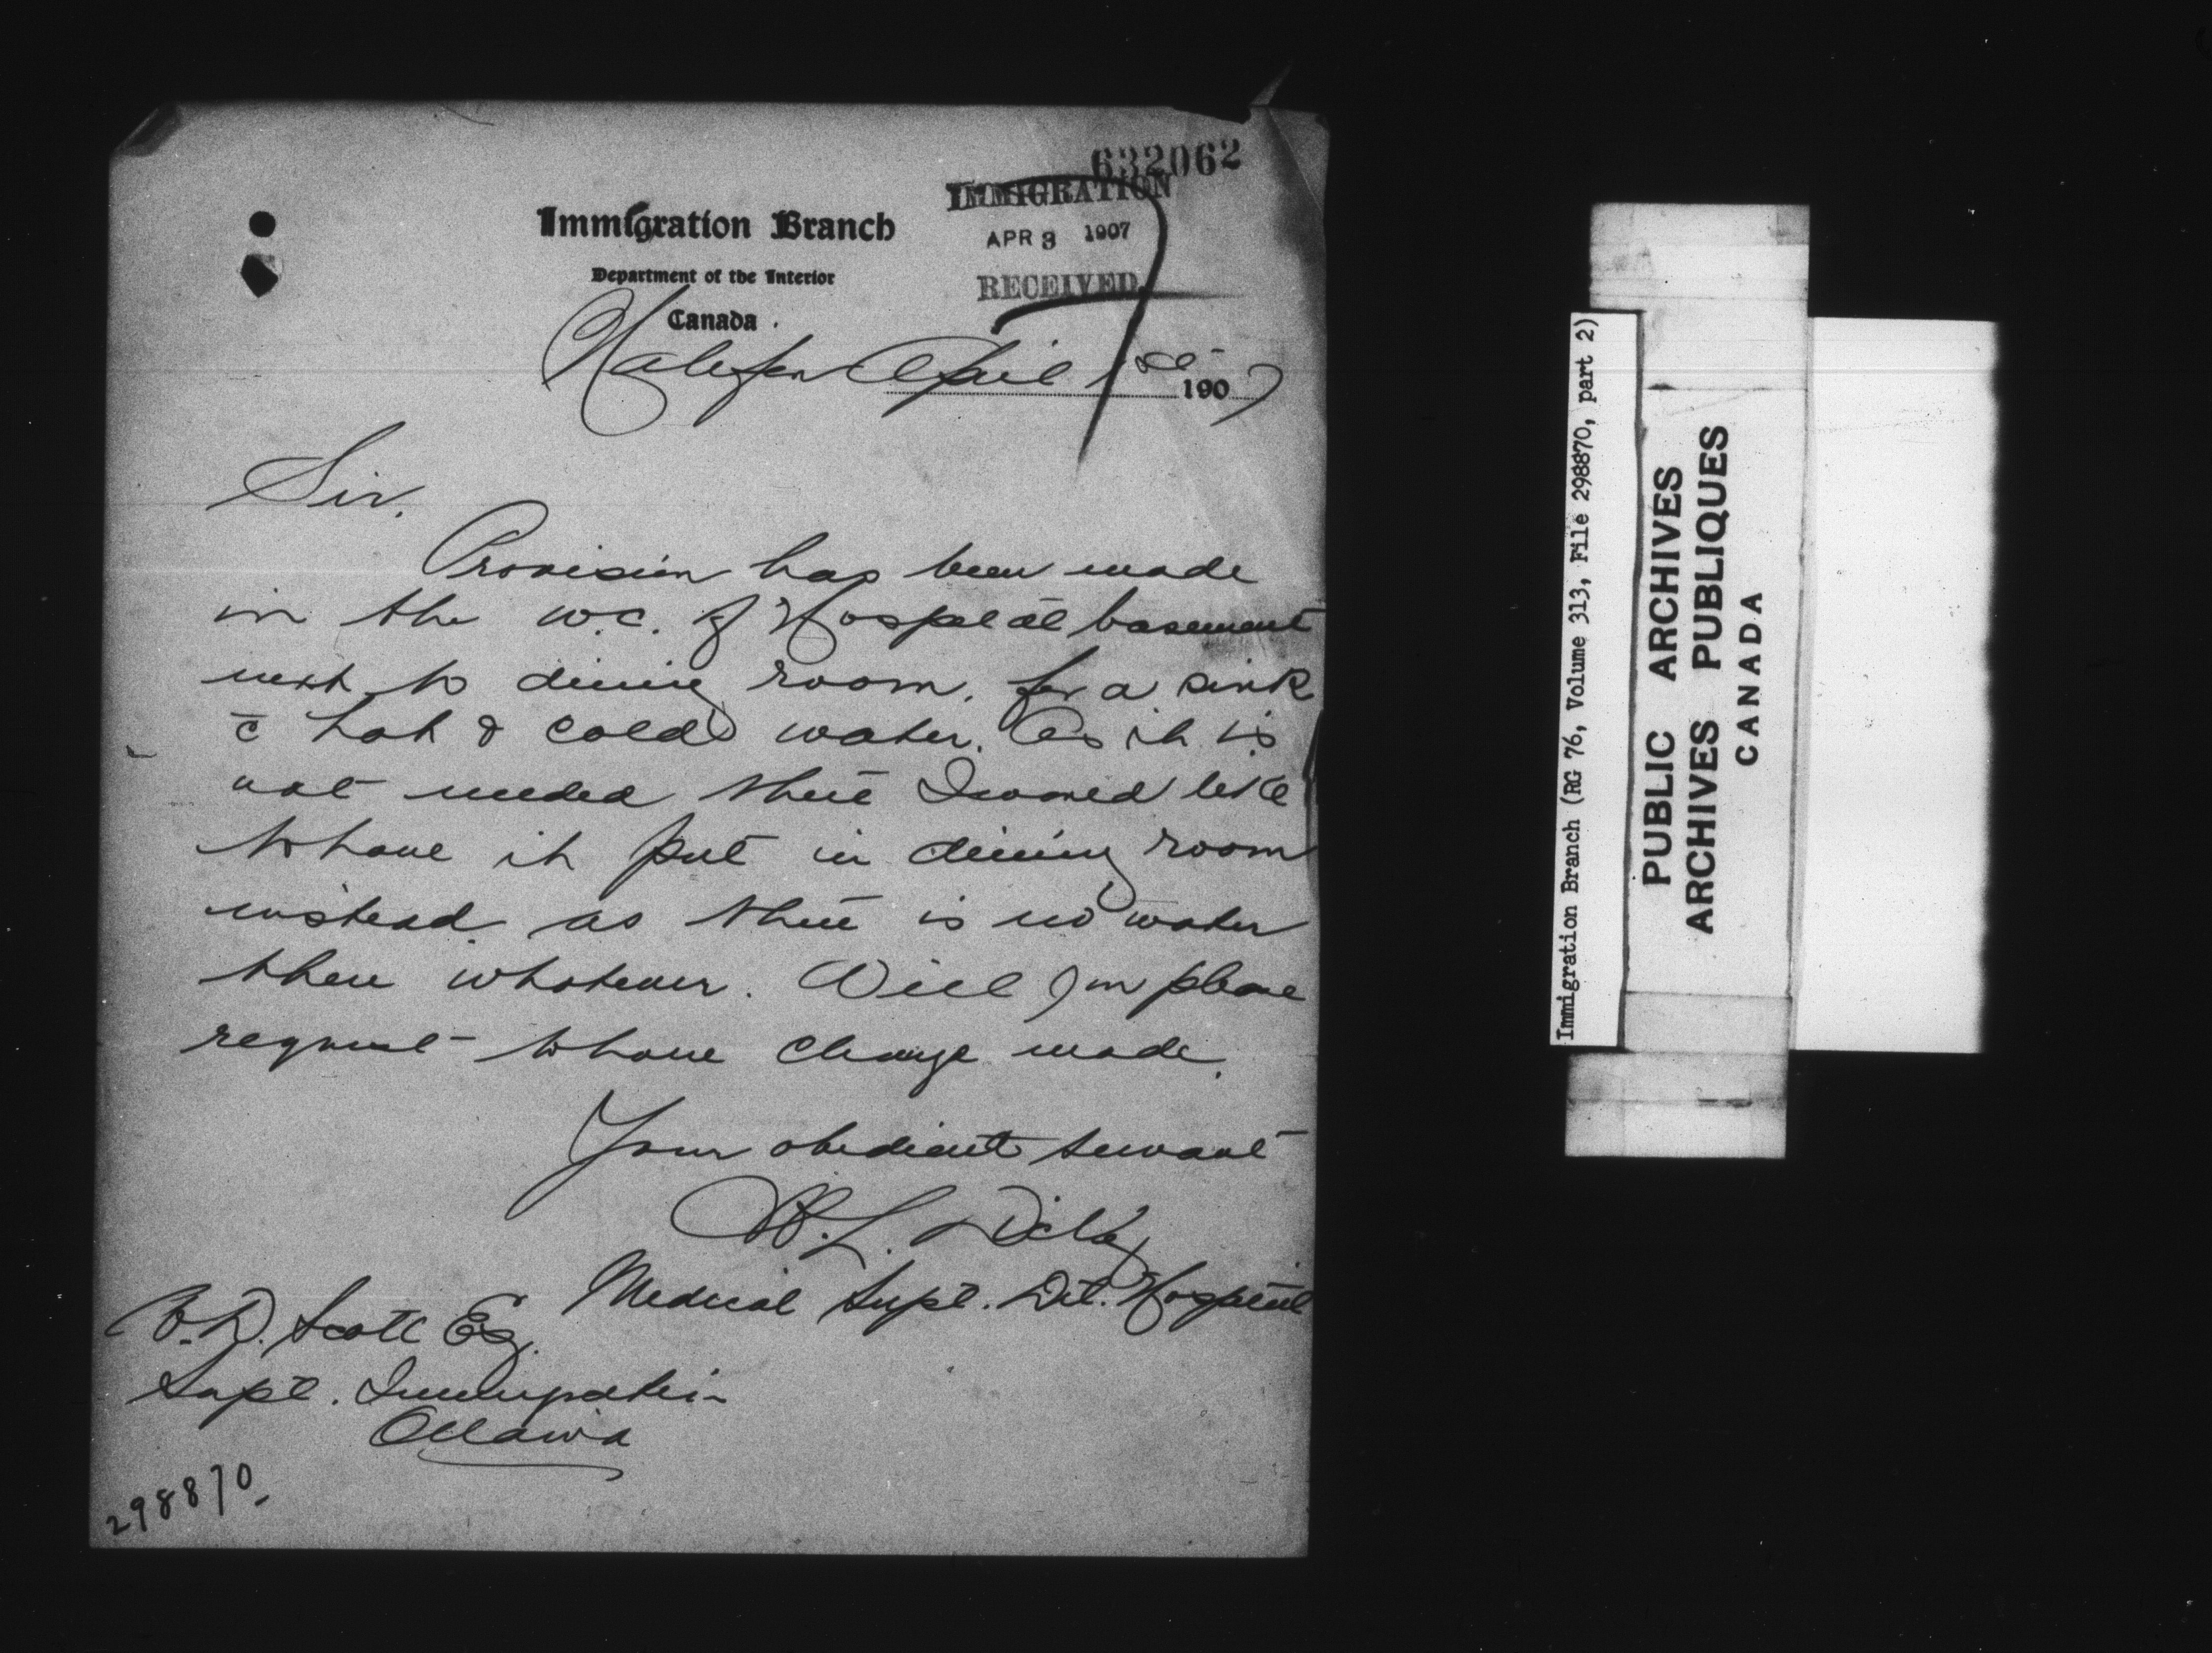 632062
IMMIGRATION
APR 3 1907
RECEIVED
Immigration Branch
Department of the Interior
Canada
Halifax April 1st 1907
Sir.
Provision has been made
in the W.C. of Hospital basement
next to dining room, for a sink
c̄ hot & cold water. As it is
not needed there I would like
to have it put in dining room
instead as there is no water
there whatever. Will you please
request to have change made.
Your obedient servant
W. L. Dickey
Medical Supt. Det. Hospital
W.D. Scott Esq.
Supt. Immigration
Ottawa
298870
Immigration Branch (RG 76, Volume 313, File 298870, part 2)
PUBLIC ARCHIVES
ARCHIVES PUBLIQUES
CANADA